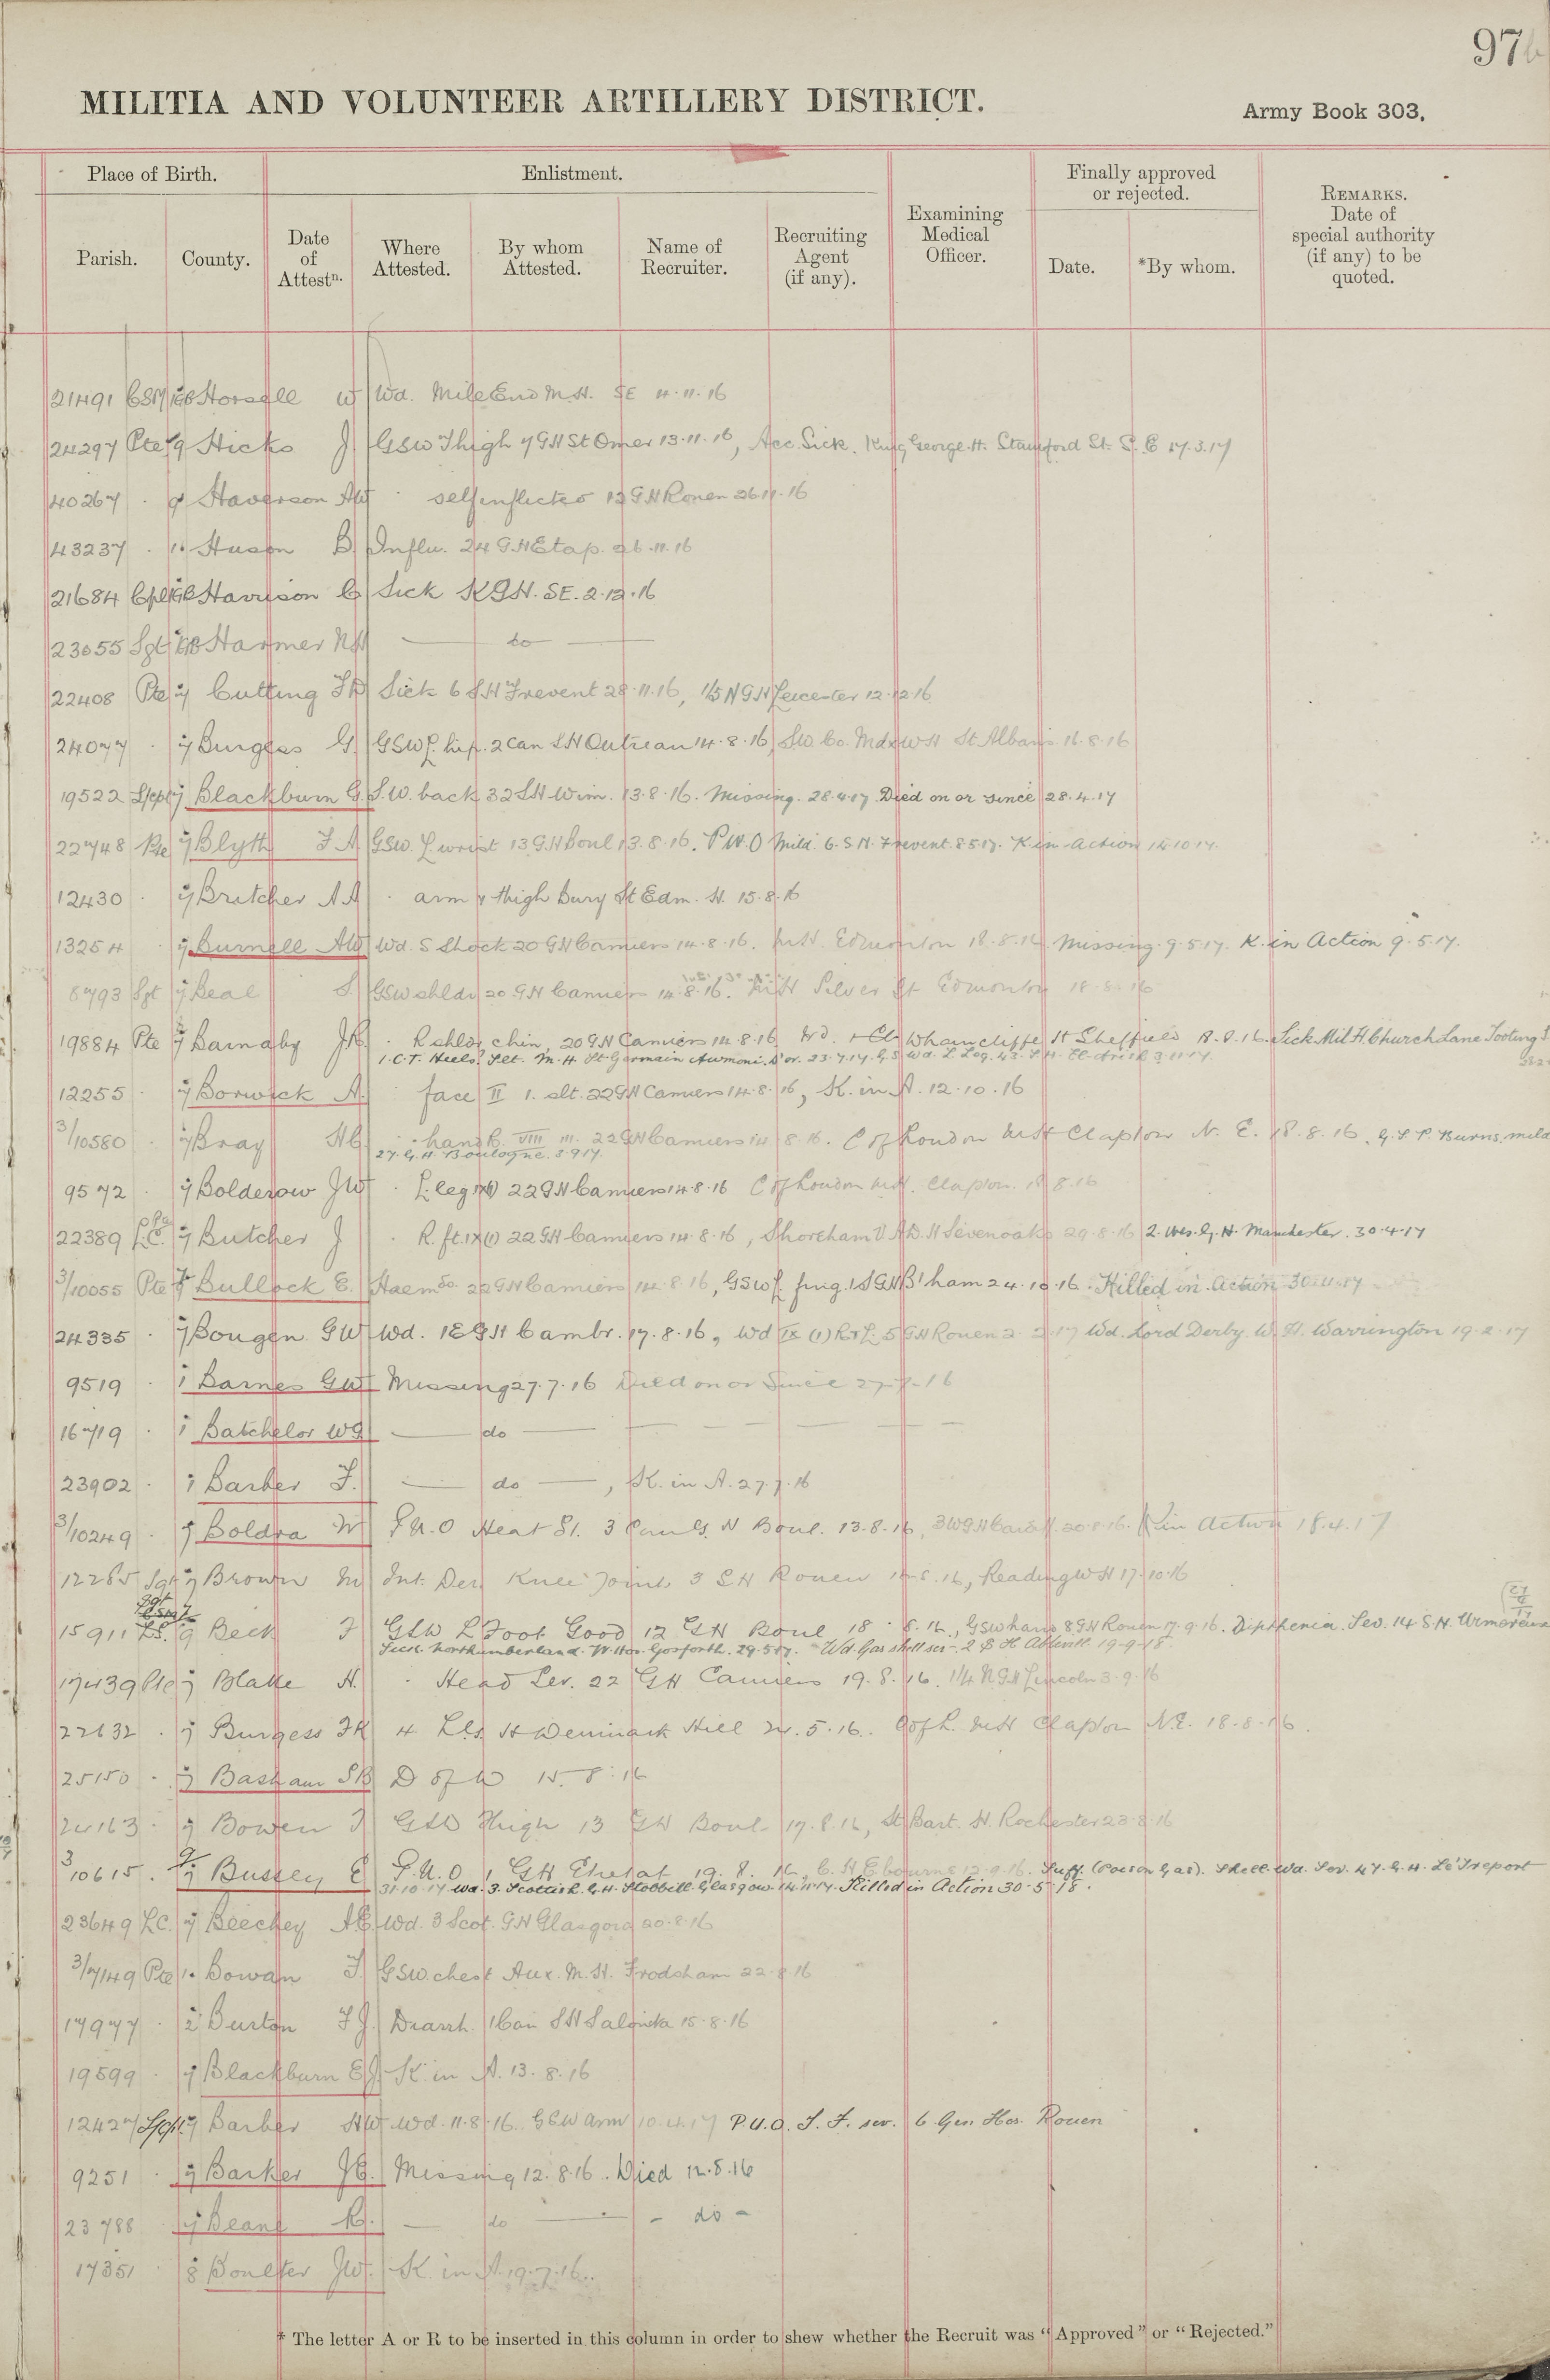 97b
MILITIA AND VOLUNTEER ARTILLERY DISTRICT.
Army Book 303.
Place of Birth.
Enlistment.
Examining Medical Officer.
Finally approved or rejected.
REMARKS. Date of special authority (if any) to be quoted.
Parish.
County.
Date of Attestn.
Where Attested.
By whom Attested.
Name of Recruiter.
Recruiting Agent (if any).
Date.
*By whom.
21491 CSM Horsell W Wd. Mile End M.H. SE 4.11.16
24297 Pte 9 Hicks J GSW Thigh 7 GH St Omer 13.11.16, Acc. Sick. King George H. Stamford St. S.E 17.3.17
40267 . 9 Haverson AW . self inflicted 12 GH Rouen 26.11.16
43237 . 11 Huson B Influ. 24 GH Etap. 26.11.16
21684 Cpl Harrison C Sick KGH. SE. 2.12.16
23055 Sgt Harmer — do —
22408 Pte 7 Cutting Sick 6 SH Frevent 28.11.16, 1/5 N GH Leicester 12.12.16
24077 . 7 Burgess G. GSW L. hip. 2 Can SH Outreau 14.8.16, Co. Mdx W H St Albans 16.8.16
19522 L/cpl 7 Blackburn G. S.W. back 32 SH Wim. 13.8.16. Missing. 28.4.17 Died on or since 28.4.17
22748 Pte 7 Blyth F A GSW. L wrist 13 GH Boul 13.8.16. P.U.O Mild. 6. S.H. Frevent. 8.5.17. K in Action
12430 . 7 Britcher A A . arm & thigh Bury St Edm. H. 15.8.16
13254 . 7 Burnell AW Wd. S Shock 20 GH Camiers 14.8.16. Edmonton 18.8.16 Missing. 9.5.17. K. in Action 9.5.17.
8793 Sgt 7 Beal S. GSW shldr 20 GH Camiers 14.8.16. Silver St Edmonton 18.8.16
19884 Pte 7 Barnaby . R shldr chin, 20 GH Camiers 14.8.16 Wharncliffe H Sheffield Sick Mil H. Church Lane Tooting
I.C.T. Heels. Slt. M.H. St Germain 23.7.17.
12255 . 7 Borwick A. . face II 1. slt. 22 GH Camiers 14.8.16, K. in A. 12.10.16
3/10580 . 7 Bray . hand VIII 22 GH Camiers 14.8.16. C of London Clapton N. E. 18.8.16, Burns. mild
27. G.H. Boulogne. 3.9.17.
9572 . 7 Bolderow JW . L. leg 22 GH Camiers 14.8.16 C of London Clapton. 18.8.16
22389 L.C. 7 Butcher J . R. ft. IX(1) 22 GH Camiers 14.8.16, Shoreham V.A.D. H Sevenoaks 29.8.16 2. Wes. G. H. Manchester. 30.4.17
3/10055 Pte 7 Bullock E. 22 GH Camiers 14.8.16, GSW f. fing. 1 S GH B'ham 24.10.16. Killed in Action
24335 . 7 Bougen GW Wd. 18 GH Cambr. 17.8.16, Wd IX (1) 5 GH Rouen Wd. Lord Derby. W. H. Warrington 19.2.17
9519 . 1 Barnes GW Missing 27.7.16 Died on or Since 27.7.16
16719 . 1 Batchelor WG — do —
23902 . 1 Barber F. — do —, K. in A. 27.7.16
3/10249 . 7 Boldra W P.U.O Heat St. 3 Can G. H Boul. 13.8.16, K in Action 18.4.17
12285 Sgt 7 Brown Int. Der Knee Joint 3 SH Rouen, Reading W H 17.10.16
15911 9 Beck F GSW L Foot Good 12 GH Boul 18.8.16, GSW hand 8 GH Rouen 17.9.16. Diphtheria. Sev. 14 S.H.
Sick. Northumberland. W. Hos. Gosforth. 29.5.17. Wd Gas shell 2 S H Abbeville 19.9.18
17439 Pte 7 Blake H. . Head Sev. 22 GH Camiers 19.8.16. 1/4 N GH Lincoln 3.9.16
22632 . 7 Burgess Hill C of L. Clapton N.E. 18.8.16.
25150 . 7 Basham D of W 15.8.16
24163 . 7 Bowen GSW Thigh 13 GH Boul 17.8.16, St Bart. H. Rochester 23.8.16
3/10615 . 7 Bussey E P.U.O 1 GH Etretat 19.8.16, Suff. (Poison Gas). Shell. Wd. Sev. 47. G. H. Le Treport
31.10.17 Wd. 3. Scottish. G.H. Stobhill Glasgow 14.11.17. Killed in Action 30.5.18.
23649 L.C. 7 Beechey AE Wd. 3 Scot. GH Glasgow 20.8.16
3/7149 Pte 1. Bowan GSW chest Aux. M. H. Frodsham 22.8.16
17977 . 2 Burton FJ. Diarrh. 1 Can SH Salonika 15.8.16
19599 . 7 Blackburn EJ. K. in A. 13.8.16
12427 L/cpl 7 Barber AW Wd. 11.8.16. GSW arm 10.4.17 P.U.O. S. F. sev. 6 Gen Hos. Rouen
9251 . 7 Barker Missing 12.8.16. Died 12.8.16
23788 7 Beane R. — do — - do -
17351 . 8 Boulter JW. K. in A. 19.7.16.
* The letter A or R to be inserted in this column in order to shew whether the Recruit was “Approved” or “Rejected.”